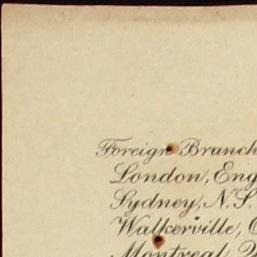 Foreign Branch
London, Eng
Sydney, N.S.
Walkerville, O
Montreal,